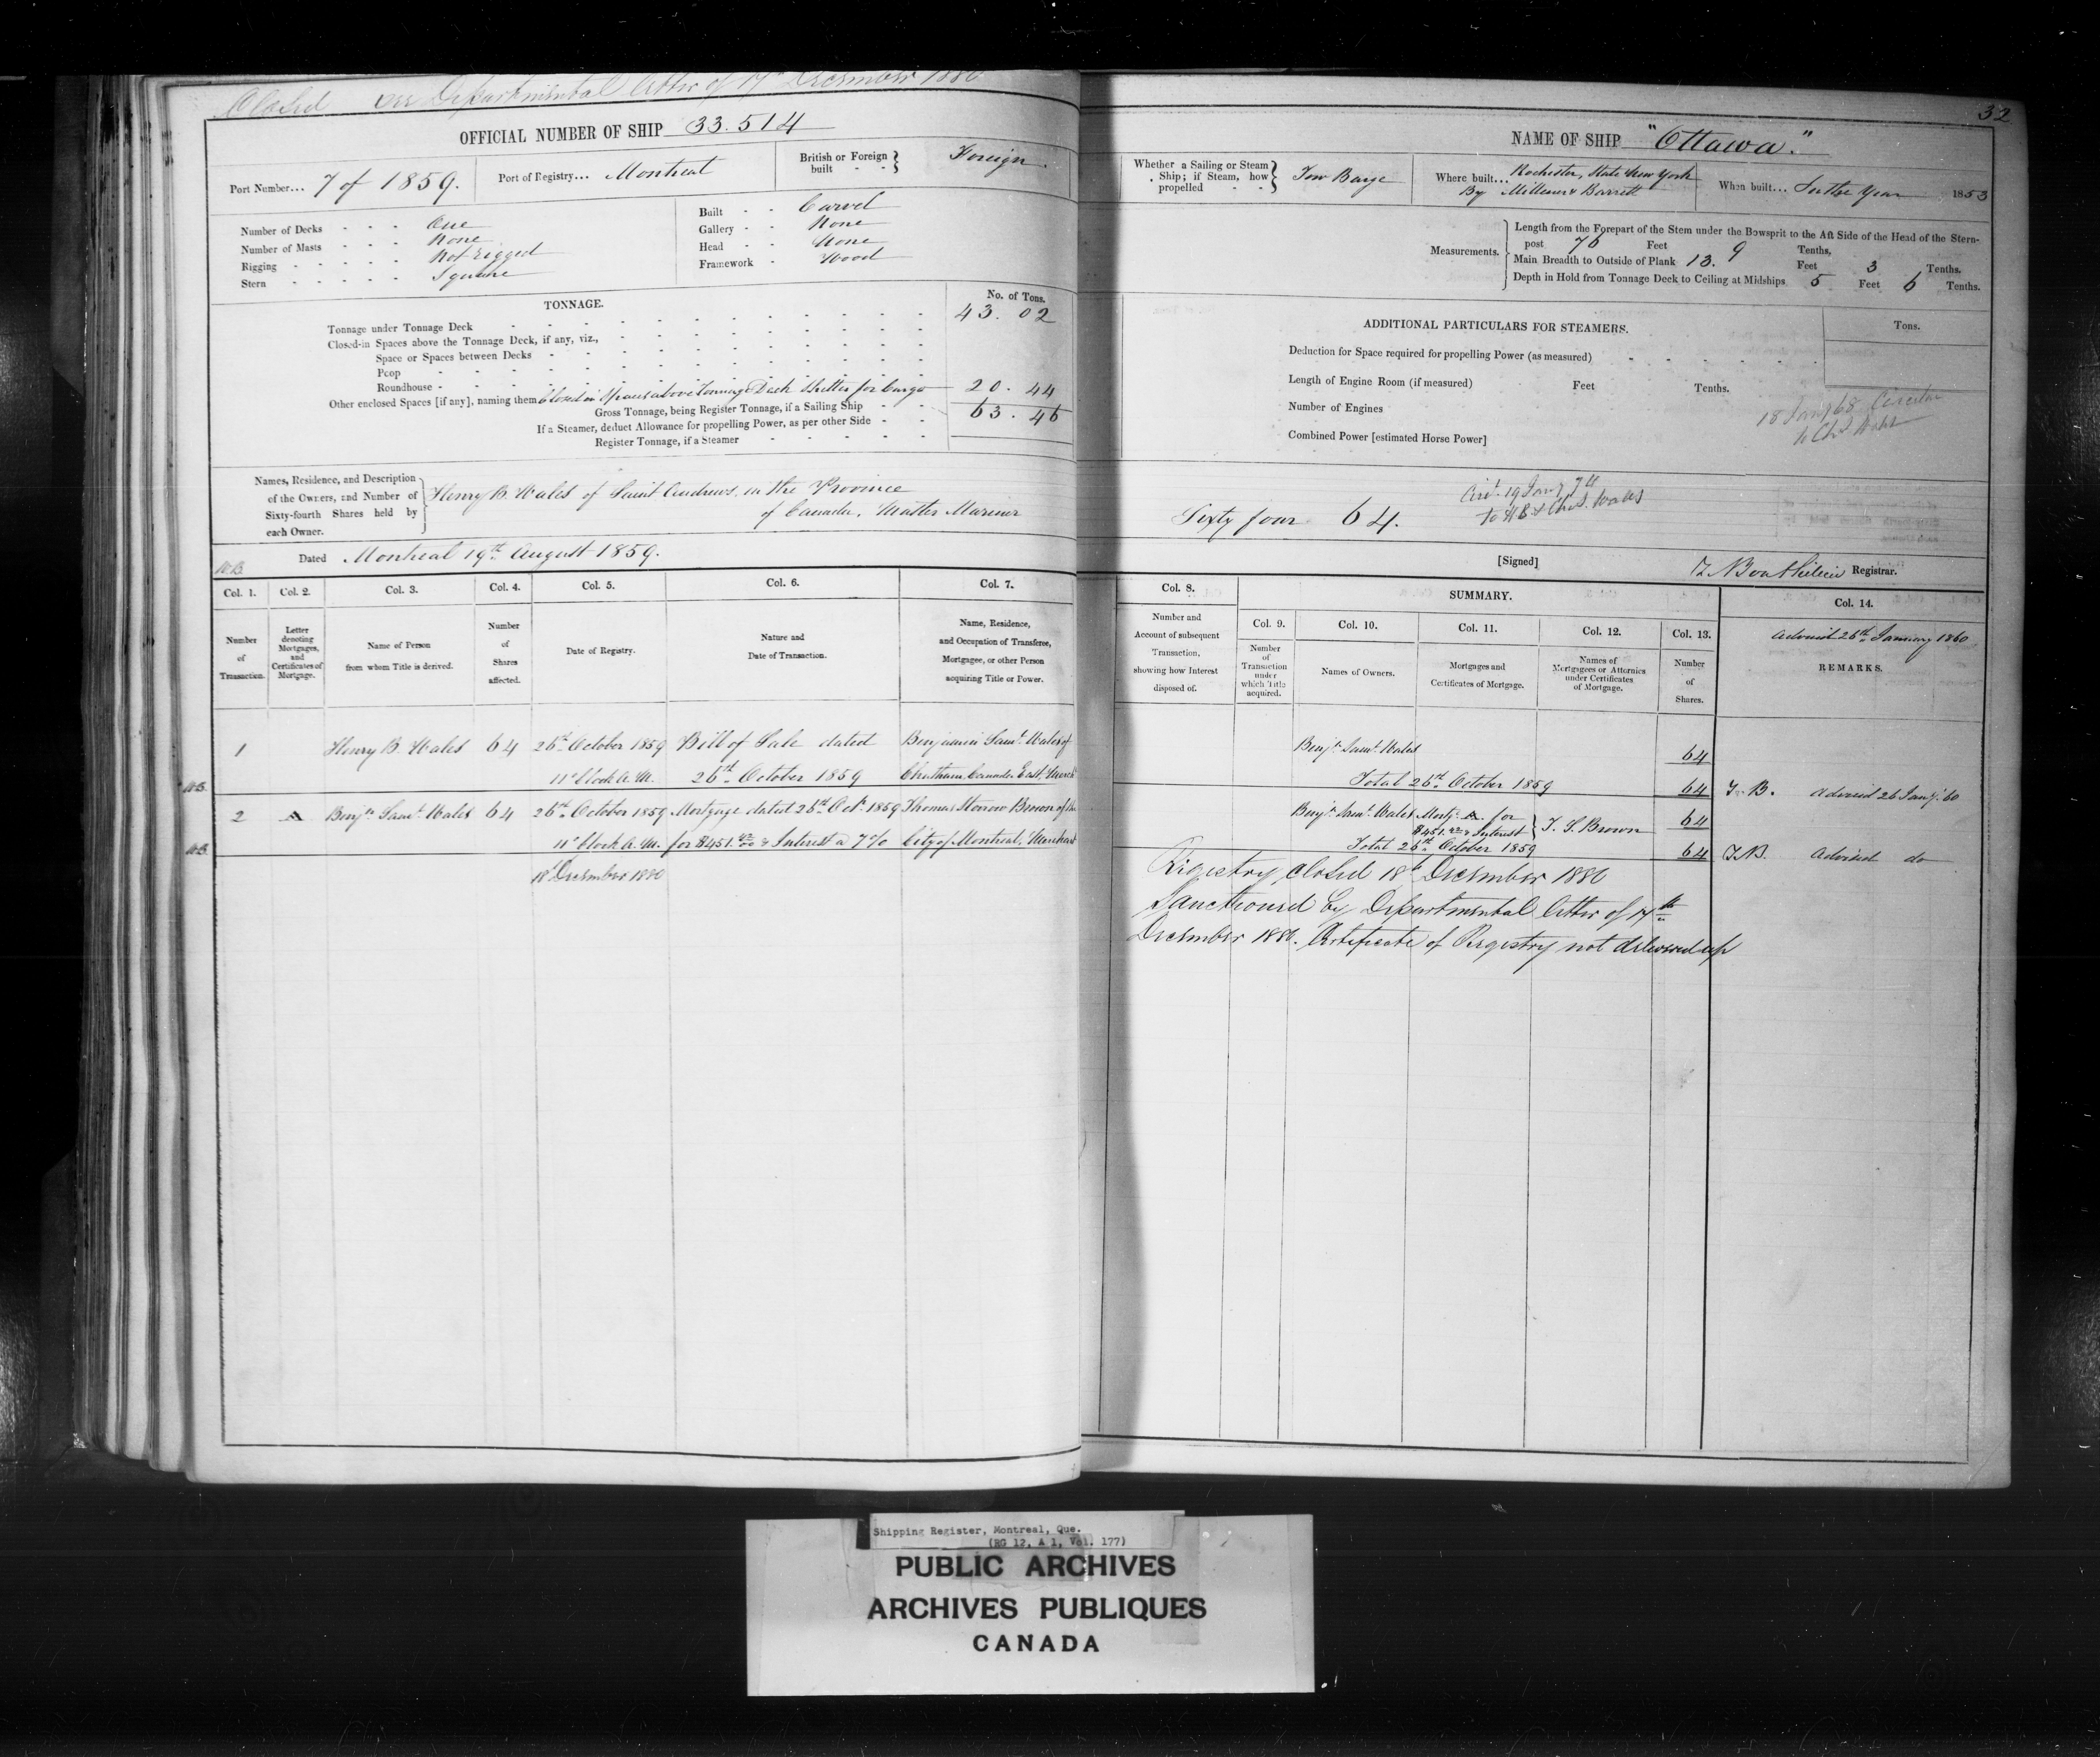 Closed see Departmental letter of 17th December 1880
OFFICIAL NUMBER OF SHIP 33.514
Port Number... 7 of 1859.
Port of Registry... Montreal
British or Foreign built - - } Foreign.
Number of Decks - - - One
Number of Masts - - - None
Rigging - - - - - Not rigged
Stern - - - - - Square
Built - - Carvel
Gallery - - None
Head - - None
Framework - Wood
TONNAGE.
No. of Tons.
Tonnage under Tonnage Deck 43. 02
Closed-in Spaces above the Tonnage Deck, if any, viz.,
Space or Spaces between Decks
Poop
Roundhouse
Other enclosed Spaces [if any], naming them Closed in Spaces above Tonnage Deck Shelter for Cargo 20. 44
Gross Tonnage, being Register Tonnage, if a Sailing Ship 63. 46
If a Steamer, deduct Allowance for propelling Power, as per other Side
Register Tonnage, if a Steamer
Names, Residence, and Description of the Owners, and Number of Sixty-fourth Shares held by each Owner. } Henry B. Wales of Saint Andrews, in the Province
of Canada, Master Mariner
Dated Montreal 19th August 1859.
Col. 1. Col. 2. Col. 3. Col. 4. Col. 5. Col. 6. Col. 7.
Number of Transaction.
Letter denoting Mortgages, and Certificates of Mortgage.
Name of Person from whom Title is derived.
Number of Shares affected.
Date of Registry.
Nature and Date of Transaction.
Name, Residence, and Occupation of Transferee, Mortgagee, or other Person acquiring Title or Power.
1 Henry B. Wales 64 26th October 1859 Bill of Sale dated Benjamin Saml. Wales of
11 o'clock A.M. 26th October 1859 Chatham Canada East, Merch
2 A Benjn. Saml. Wales 64 26th October 1859 Mortgage dated 26th Octr. 1859 Thomas Storrow Brown of the
11 o'clock A.M. for $451. & Interest a 7% City of Montreal, Merchant
18 December 1880
32
NAME OF SHIP "Ottawa."
Whether a Sailing or Steam Ship; if Steam, how propelled - - } Tow Barge
Where built... Rochester, State New York
By Millener & Barrett
When built... In the Year 1853
Measurements.
Length from the Forepart of the Stem under the Bowsprit to the Aft Side of the Head of the Stern-
post 76 Feet 9 Tenths.
Main Breadth to Outside of Plank 13. Feet 3 Tenths.
Depth in Hold from Tonnage Deck to Ceiling at Midships 5 Feet 6 Tenths.
ADDITIONAL PARTICULARS FOR STEAMERS.
Tons.
Deduction for Space required for propelling Power (as measured)
Length of Engine Room (if measured) Feet Tenths.
Number of Engines
Combined Power [estimated Horse Power]
18 Jany 68 Circular
to Chs Wales
Sixty four 64.
Circ. 19 Jany 74
To H B & Chas. Wales
[Signed] Registrar.
Col. 8.
Number and Account of subsequent Transaction, showing how Interest disposed of.
SUMMARY.
Col. 9. Col. 10. Col. 11. Col. 12. Col. 13. Col. 14.
Number of Transaction under which Title acquired.
Names of Owners.
Mortgages and Certificates of Mortgage.
Names of Mortgagees or Attornies under Certificates of Mortgage.
Number of Shares.
Advised 26th January 1860
REMARKS.
Benjn. Saml. Wales 64
Total 26th October 1859 64 T. B. Advised 26 Jany. 60
Benjn. Saml. Wales Mortg. A. for
$451. & Interest } T. S. Brown 64
Total 26th October 1859 64 T.B. Advised do
Registry closed 18th December 1880
Sanctioned by Departmental letter of 17th
December 1880. Certificate of Registry not delivered up
Shipping Register, Montreal, Que.
(RG 12, A 1, Vol. 177)
PUBLIC ARCHIVES
ARCHIVES PUBLIQUES
CANADA